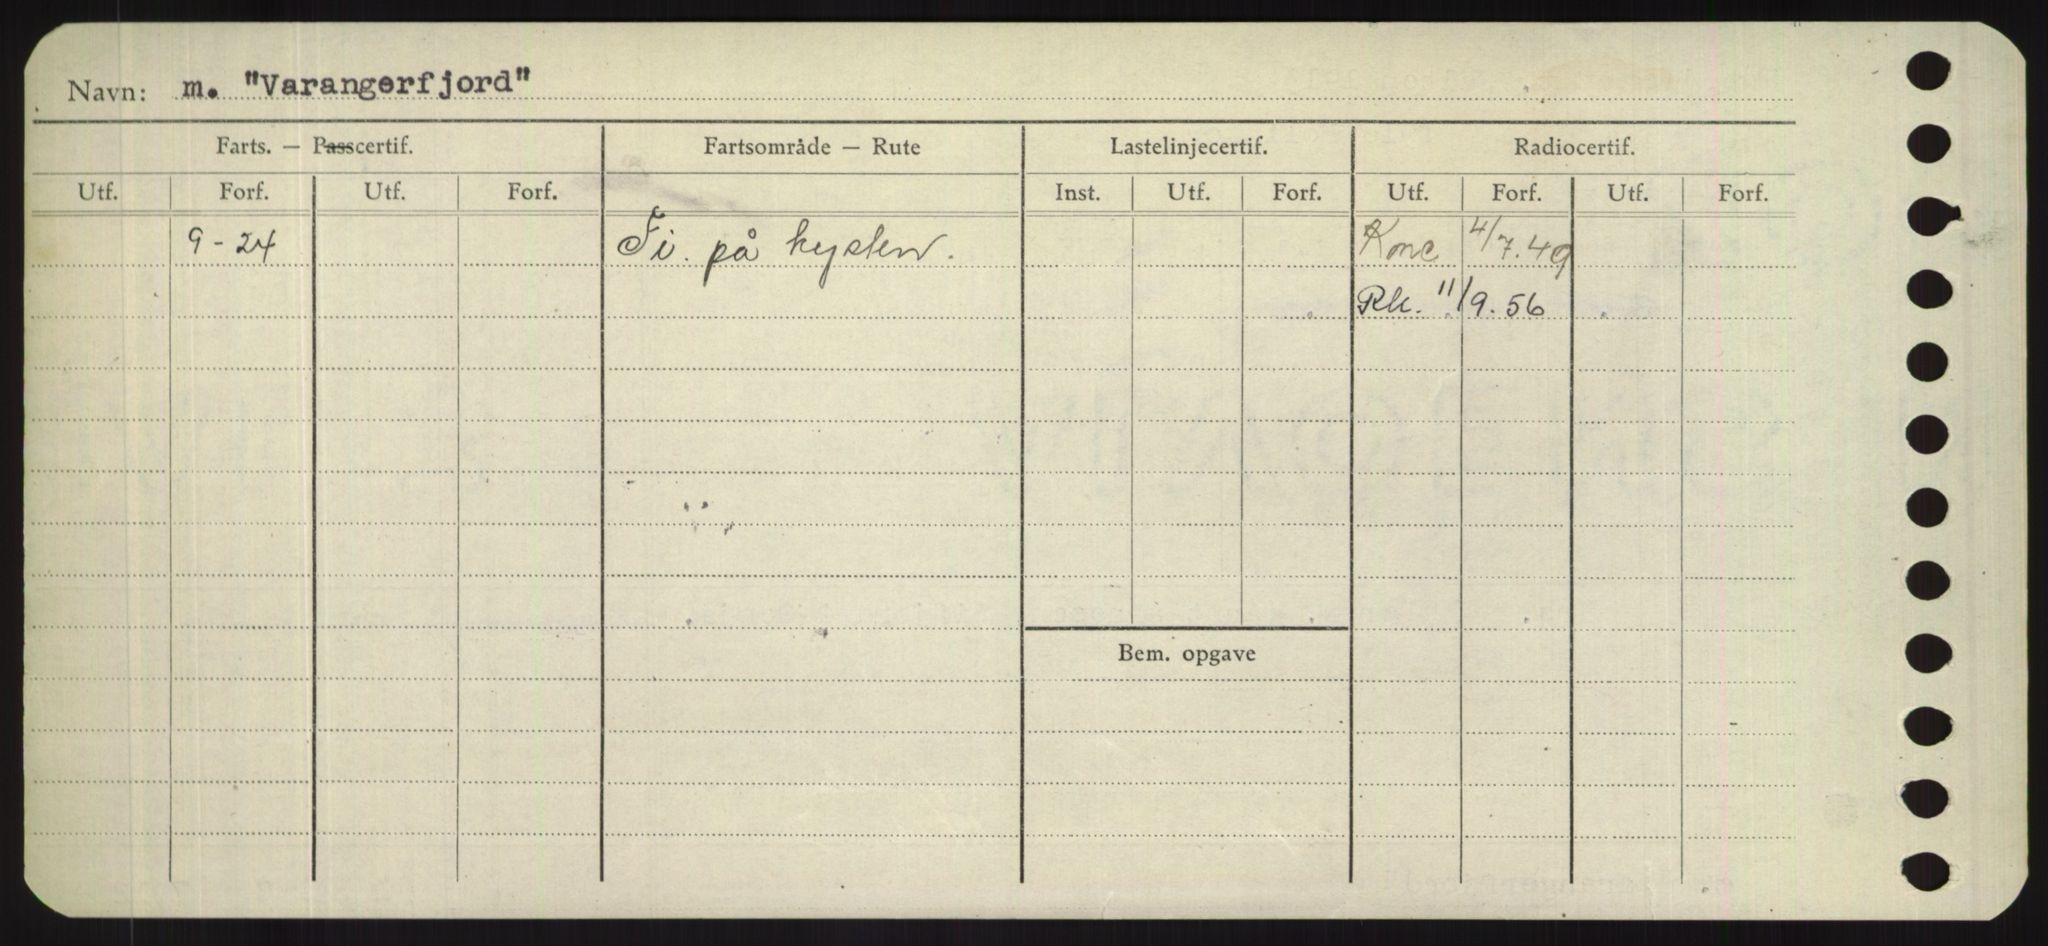 Navn: m. "Varangerfjord"
Farts. — Passcertif. Fartsområde — Rute Lastelinjecertif. Radiocertif.
Utf. Forf. Utf. Forf. Inst. Utf. Forf. Utf. Forf. Utf. Forf.
9-24 Fi. på kysten. Konc 4/7.49
Rk. 11/9.56
Bem. opgave